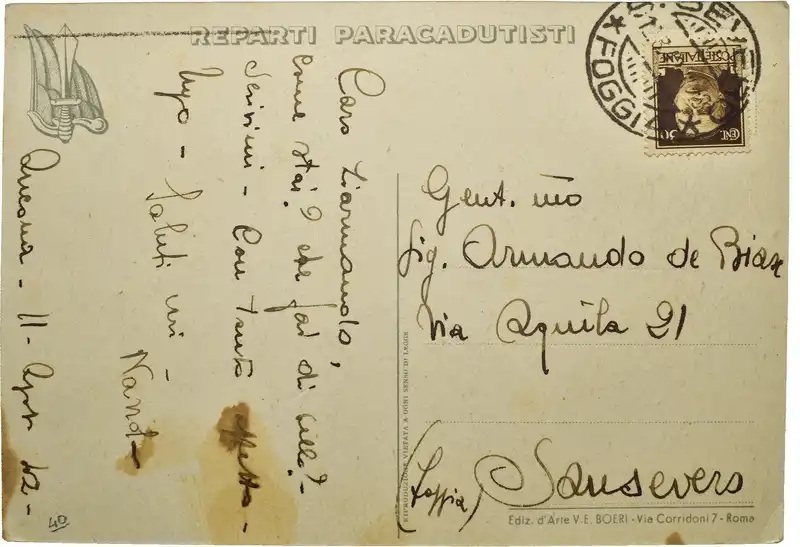 REPARTI PARACADUTISTI
Caro
come stai? che fai di bello?
Scrivimi - Con tanto affetto -
Ugo - Saluti
Nand
Ancona - 11 - Agosto 42 -
40
RIPRODUZIONE VIETATA A OGNI SENSO DI LEGGE
FOGGIA
POSTE ITALIANE
CENT. 30
Gent. mo
Sig. Armando de Biase
Via Aquila 21
(Foggia) Sansevero
Ediz. d'Arte V. E. BOERI - Via Corridoni 7 - Roma